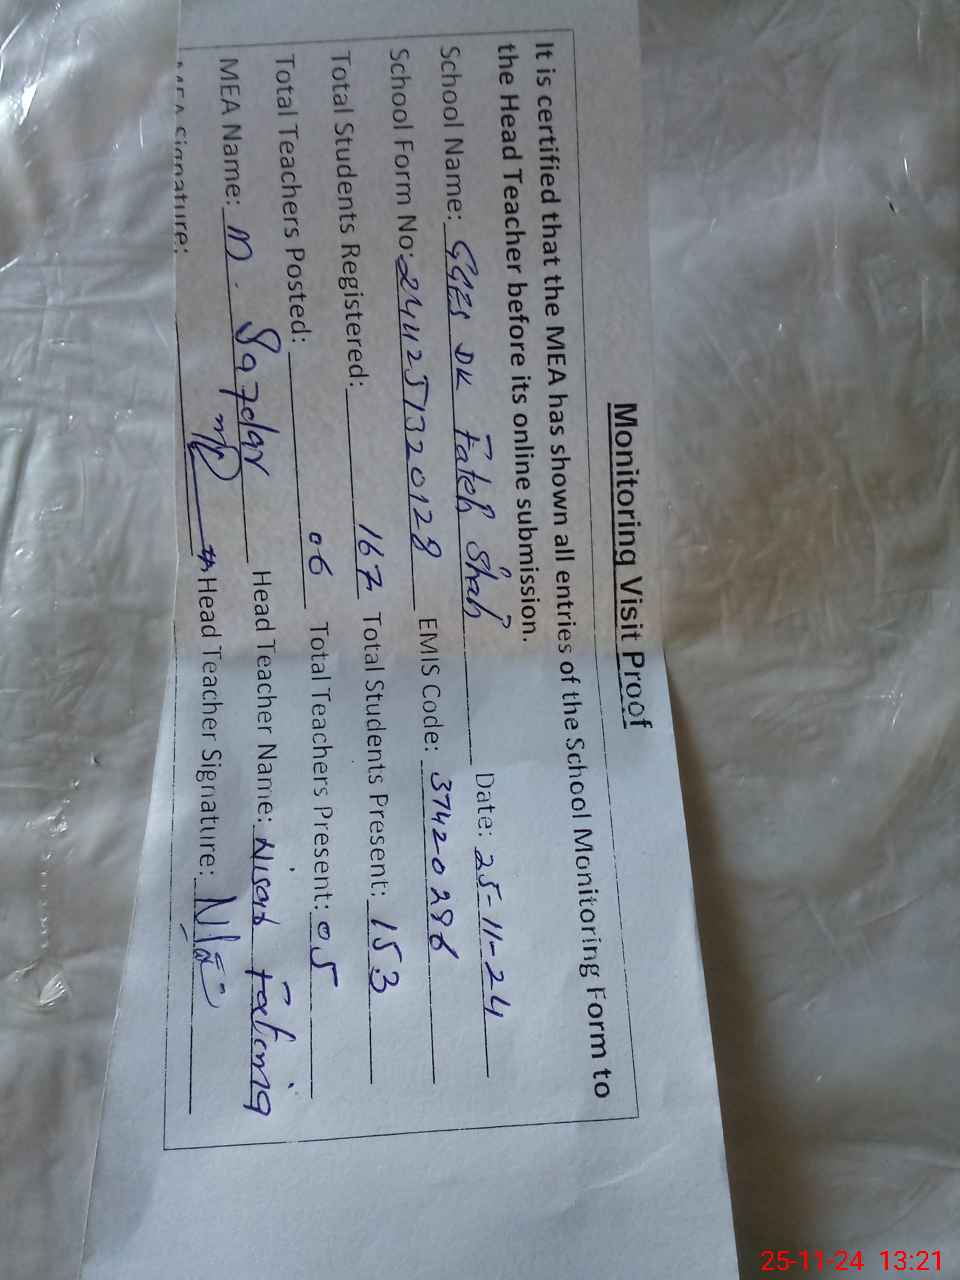 Monitoring Visit Proof
It is certified that the MEA has shown all entries of the School Monitoring Form to
the Head Teacher before its online submission.
School Name: GGES DK Fateh Shah Date: 25-11-24
School Form No: 244251320128 EMIS Code: 37420286
Total Students Registered: 167 Total Students Present: 153
Total Teachers Posted: 06 Total Teachers Present: 05
MEA Name: M. Safdar Head Teacher Name: Nisart Fatima
MEA Signature: Head Teacher Signature:
25-11-24 13:21